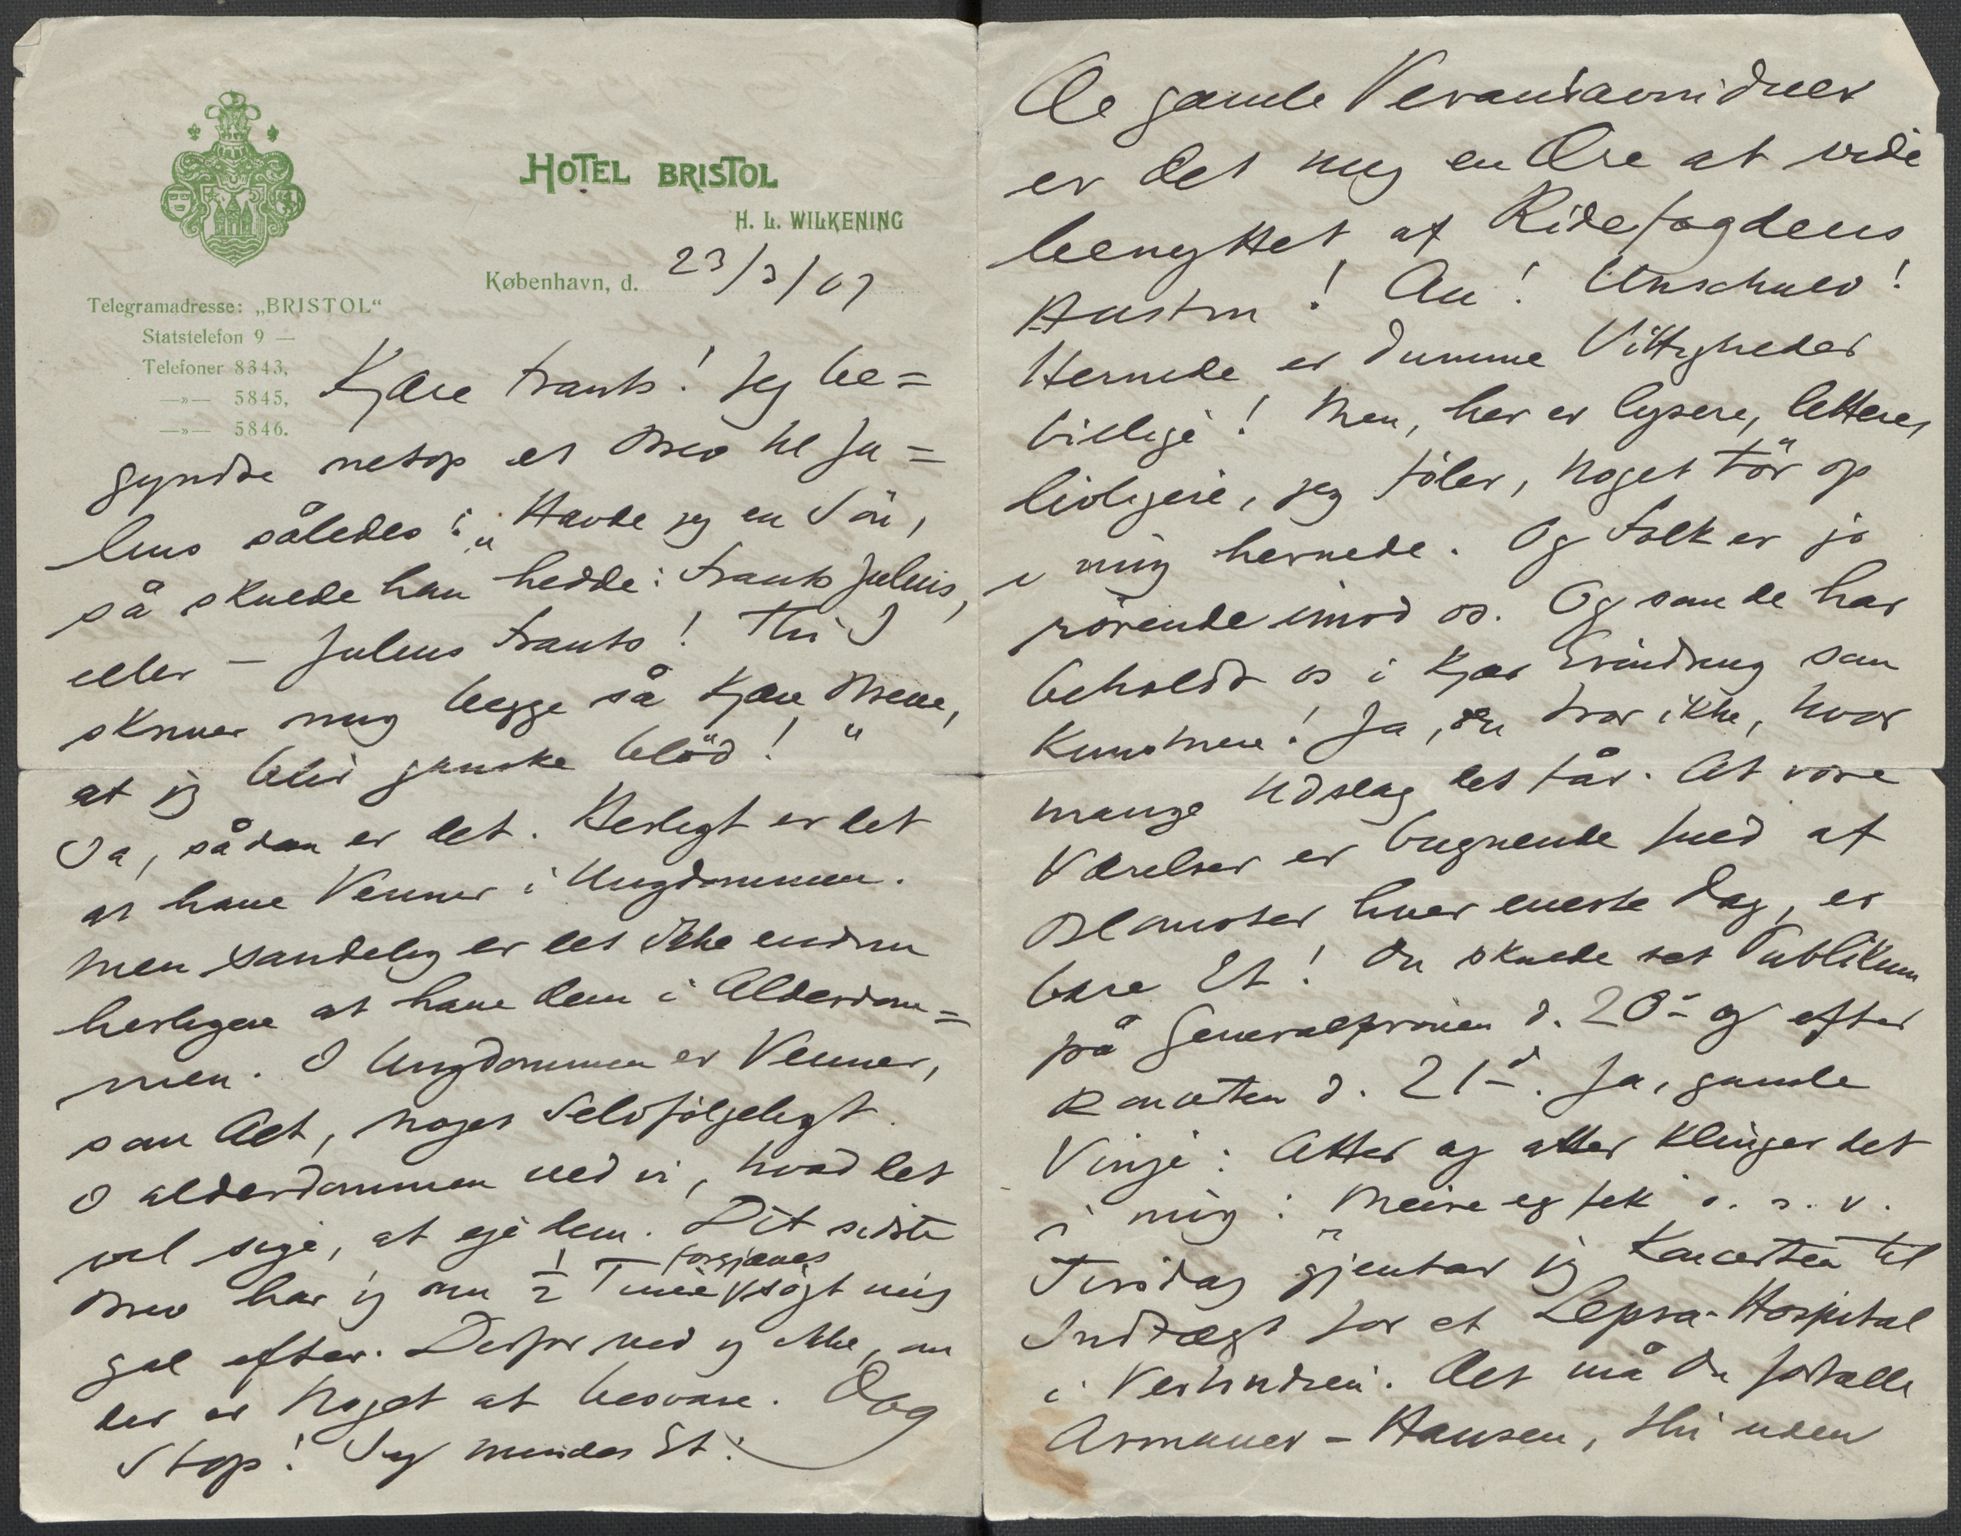 HOTEL BRISTOL
H. L. WILKENING
København, d. 23/3/07
Telegramadresse: „BRISTOL“
Statstelefon 9 —
Telefoner 8343,
—»— 5845,
—»— 5846.
Kjære Frants! Jeg be=
gyndte netop et Brev til Ju=
lius således: „Havde jeg en Sön,
så skulde han hedde: Frants Julius,
eller – Julius Frants! Thi I
skriver mig begge så kjære Breve,
at jeg blir ganske blöd!“
Ja, sådan er det. Herligt er det
at have Venner i Ungdommen.
Men sandelig er det ikke endnu
herligere at have dem i Alderdom=
men. I Ungdommen er Venner,
som Alt, noget Selvfölgeligt.
I Alderdommen ved vi, hvad det
vil sige, at eje dem. Dit sidste
Brev har jeg nu ½ Time forgjæves søgt mig
gal efter. Derfor ved jeg ikke, om
der er Noget at besvare. Dog
Stop! Jeg mindes Et:
De gamle
er det mig en Ære at vide
benyttet af Ridefogdens
Hustru! Au! Unschuld!
Hernede er dumme Vittigheder
billige! Men, her er lysere, lettere,
livligere, jeg føler, Noget tör op
i mig hernede. Og Folk er jo
rörende imod os. Og som de har
beholdt os i kjær Erindring som
Kunstnere! Ja, du tror ikke, hvor
mange Udslag det får. At vore
Værelser er bugnende fuld af
Blomster hver eneste Dag, er
bare Et! Du skulde set Publikum
på Generalprøven d. 20de og efter
Koncerten d. 21de. Ja, gamle
Vinje: Atter og atter klinger det
i mig: „Meire eg fek“ o. s. v.
Tirsdag gjentar jeg Koncerten til
Indtægt for et Lepra-Hospital
i Vestindien. Det må Du fortælle
Armauer-Hansen, thi uden